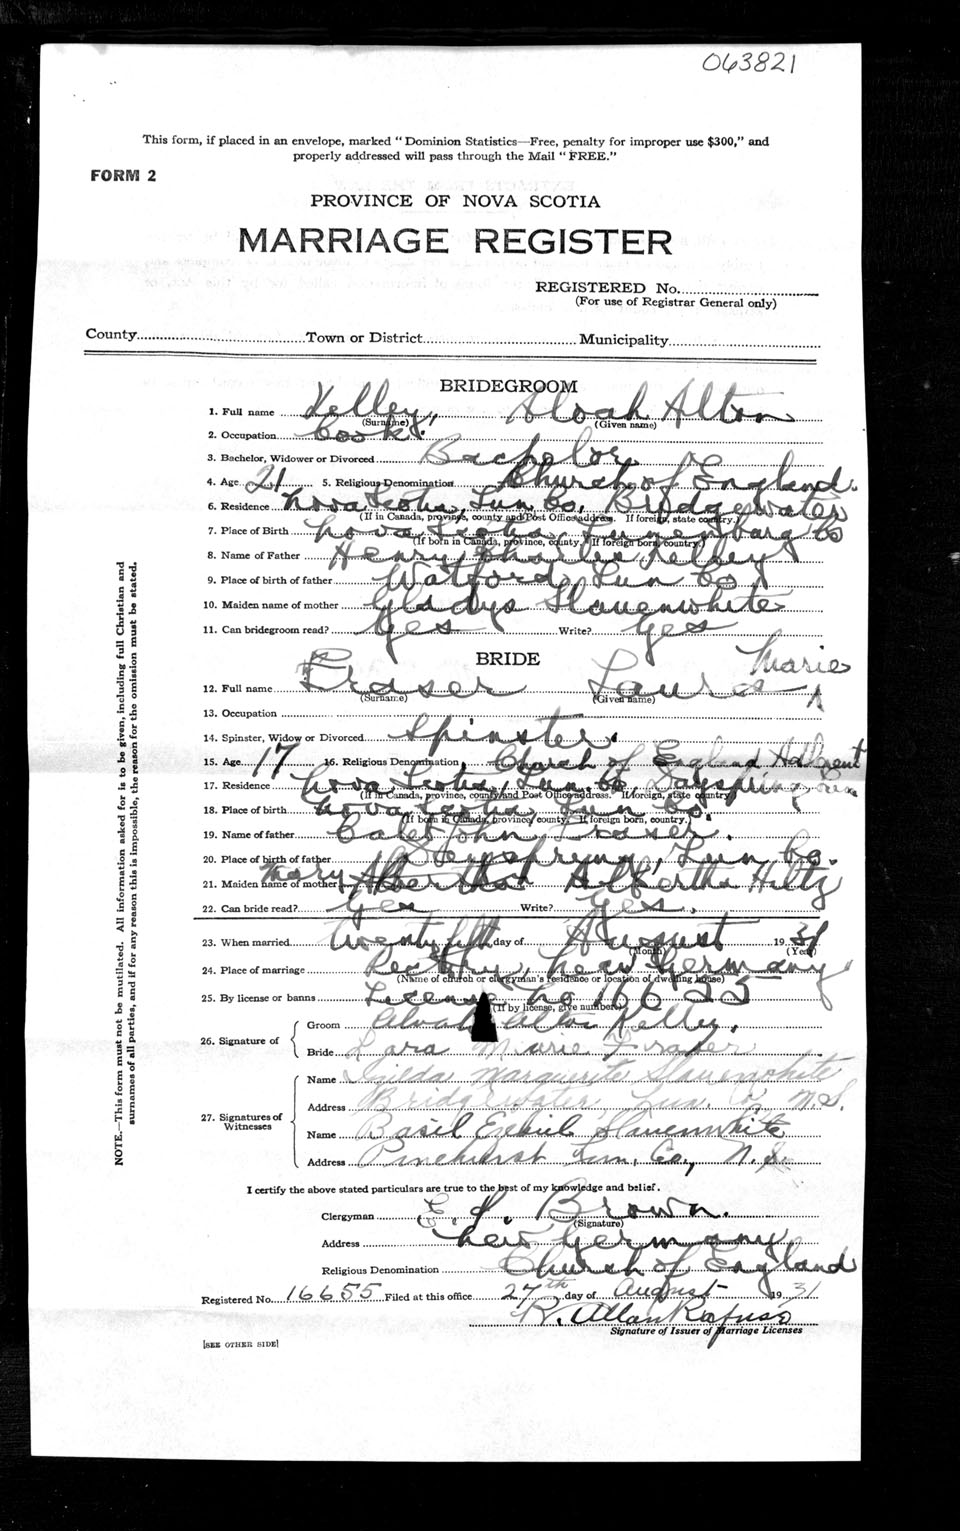 063821
This form, if placed in an envelope, marked "Dominion Statistics—Free, penalty for improper use $300," and
properly addressed will pass through the Mail "FREE."
FORM 2
PROVINCE OF NOVA SCOTIA
MARRIAGE REGISTER
REGISTERED No.
(For use of Registrar General only)
County Town or District Municipality
BRIDEGROOM
1. Full name Kelley, Alvah Alton
(Surname) (Given name)
2. Occupation Cook.
3. Bachelor, Widower or Divorced Bachelor
4. Age 21 5. Religious Denomination Church of England.
6. Residence Nova Scotia, Lun Co, Bridgewater
(If in Canada, province, county and Post Office address. If foreign, state country.)
7. Place of Birth Nova Scotia, Lunenburg Co
(If born in Canada, province, county. If foreign born, country.)
8. Name of Father Henry Charles Kelley
9. Place of birth of father Watford, Lun Co
10. Maiden name of mother Gladys Slauenwhite
11. Can bridegroom read? Yes Write? Yes
BRIDE
Marie
12. Full name Fraser Laura
(Surname) (Given name)
13. Occupation
14. Spinster, Widow or Divorced Spinster.
15. Age 17 16. Religious Denomination Church of England Adherent
17. Residence Nova Scotia, Lun Co, Dayspring
(If in Canada, province, county and Post Office address. If foreign, state country.)
18. Place of birth Nova Scotia, Lun Co.
(If born in Canada, province, county. If foreign born, country.)
19. Name of father John Fraser.
20. Place of birth of father Dayspring, Lun Co.
21. Maiden name of mother Mary Albertha Hiltz
22. Can bride read? Yes Write? Yes.
23. When married twenty fifth day of August 1931
(Month) (Year)
24. Place of marriage Rectory, New Germany
(Name of church or clergyman's residence or location of dwelling house)
25. By license or banns License No 16655
(If by license, give number)
26. Signature of Groom Alvah Alton Kelley.
Bride Lara Marie Fraser
27. Signatures of Witnesses Name Marguerite Slauenwhite
Address Bridgewater, Lun. Co, N.S.
Name Basil Ezekiel Slauenwhite
Address Pinehurst Lun. Co., N.S.
I certify the above stated particulars are true to the best of my knowledge and belief.
Clergyman Brown.
(Signature)
Address New Germany
Religious Denomination Church of England
Registered No. 16655 Filed at this office 27th day of August 1931
R. Allan Rafuse
Signature of Issuer of Marriage Licenses
[SEE OTHER SIDE]
NOTE.—This form must not be mutilated. All information asked for is to be given, including full Christian and
surnames of all parties, and if for any reason this is impossible, the reason for the omission must be stated.